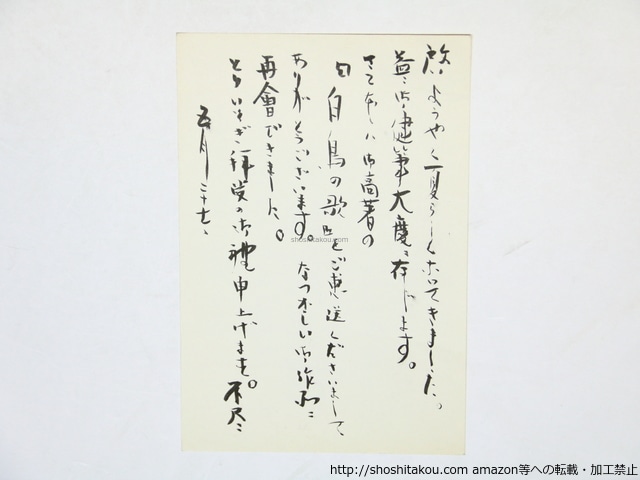 啓 ようやく夏らしくなってきました。
益々御健筆大慶に存じます。
さて本日は御高著の
『白鳥の歌』をご恵送くださいまして
ありがとうございます。なつかしい御作品に
再會できました。
とりいそぎ拝受の御禮申上げます。不尽
五月二十七日
shoshitakou.com
http://shoshitakou.com amazon等への転載・加工禁止